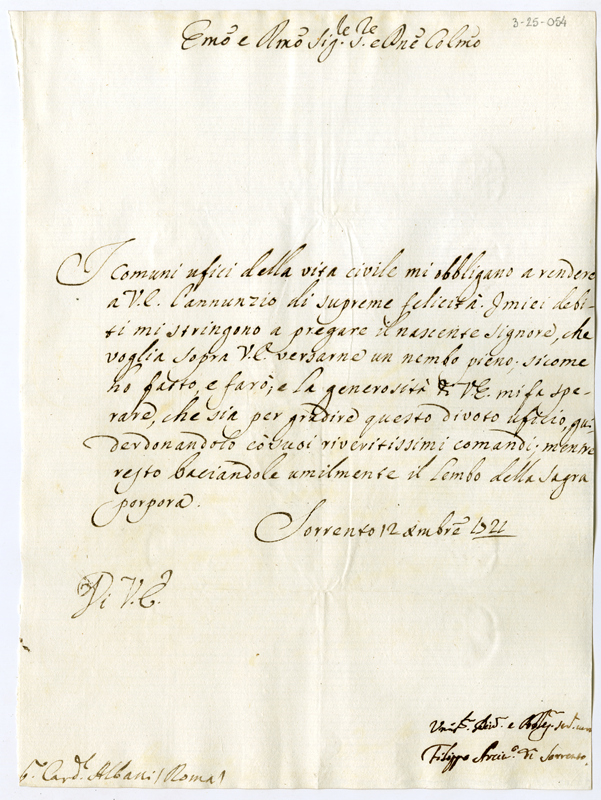 3-25-054
Emõ e Rmõ Sig.re S.re e Pñe Colmõ
I comuni ufici della vita civile mi obbligano a rendere
a V.E. l'annunzio di supreme felicità. I miei debi-
ti mi stringono a pregare il nascente Signore, che
voglia sopra V.E. versarne un nembo pieno, sicome
hò fatto, e farò; e la generosità di V.E. mi fa spe-
rare, che sia per gradire questo divoto uficio, gui-
derdonandolo cõ suoi riveritissimi comandi; mentre
resto baciandole umilmente il lembo della sagra
porpora.
Sorrento 12 Xmbrẽ 1721
Di V.E.
Filippo Arciv.o di Sorrento.
Card. Albani (Roma)